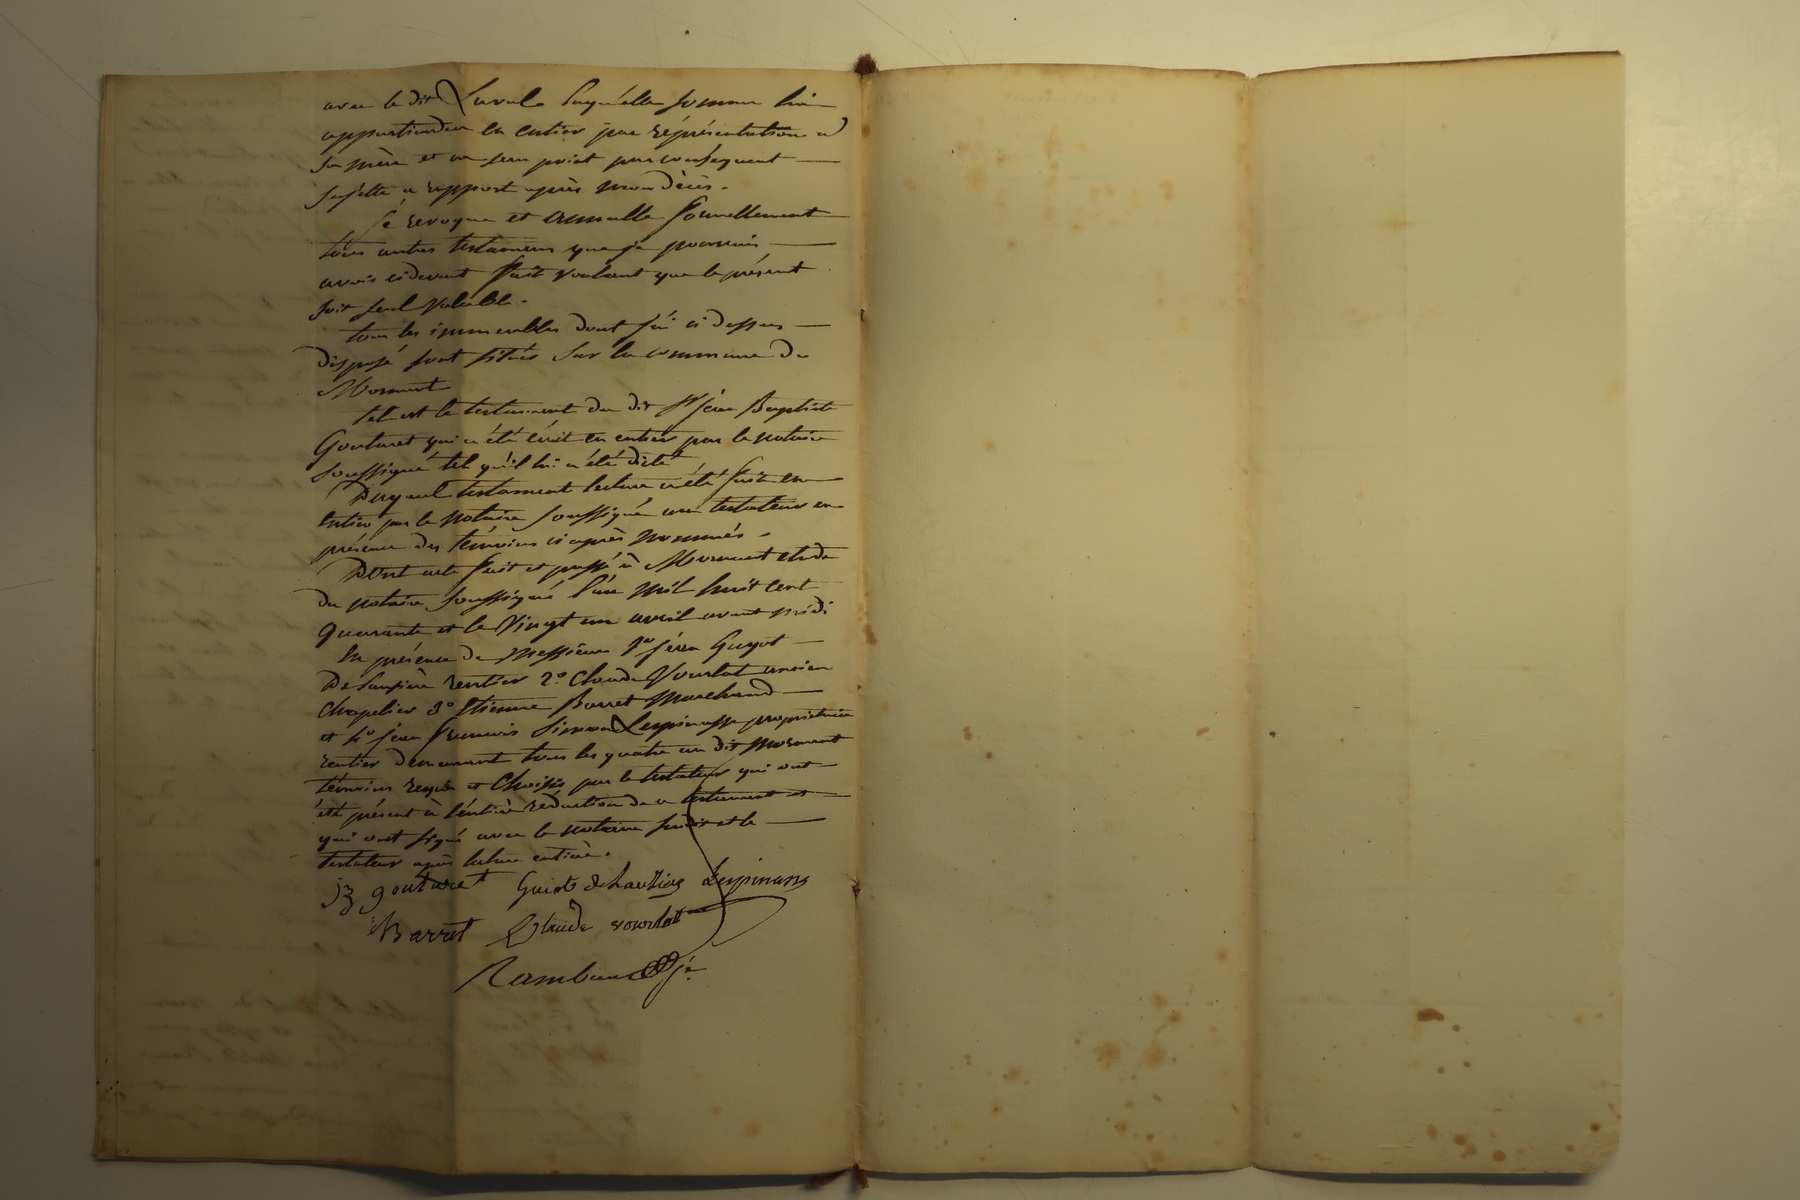 avec le dit Laval laquelle somme lui
appartiendra en entier par représentation de
sa mère et ne sera point par conséquent
sujette a rapport après mon décès.
Je revoque et annulle formellement
tous autres testamens que je pourrais
avoir cidevant fait voulant que le présent
soit seul valable.
tous les immeubles dont j'ai ci dessus
disposé sont situés sur la commune de
Mornant
tel est le testament du dit Sr jean Baptiste
Goutaret qui a été écrit en entier par le notaire
soussigné tel qu'il lui a été dicté
Duquel testament lecture a été faite en
entier par le notaire soussigné au testateur en
présence des témoins ci après nommés.
Dont acte fait et passé à Mornant etude
du notaire soussigné l'an mil huit cent
quarante et le vingt un avril avant midi
En présence de Messieurs 1º jean Guyot
De rentier 2º Claude Vourlat ancien
chapelier 3º Etienne Barret marchand
et 4º jean françois Simon Lespinasse propriétaire
rentier demeurant tous les quatre au dit Mornant
témoins requis et choisis par le testateur qui ont
été présent à l'entière rédaction de ce testament et
qui ont signé avec le notaire susdit et le
testateur après lecture entière.
jB goutaret Guiot Lespinasse
Barret Claude vourlat
Rambaud je